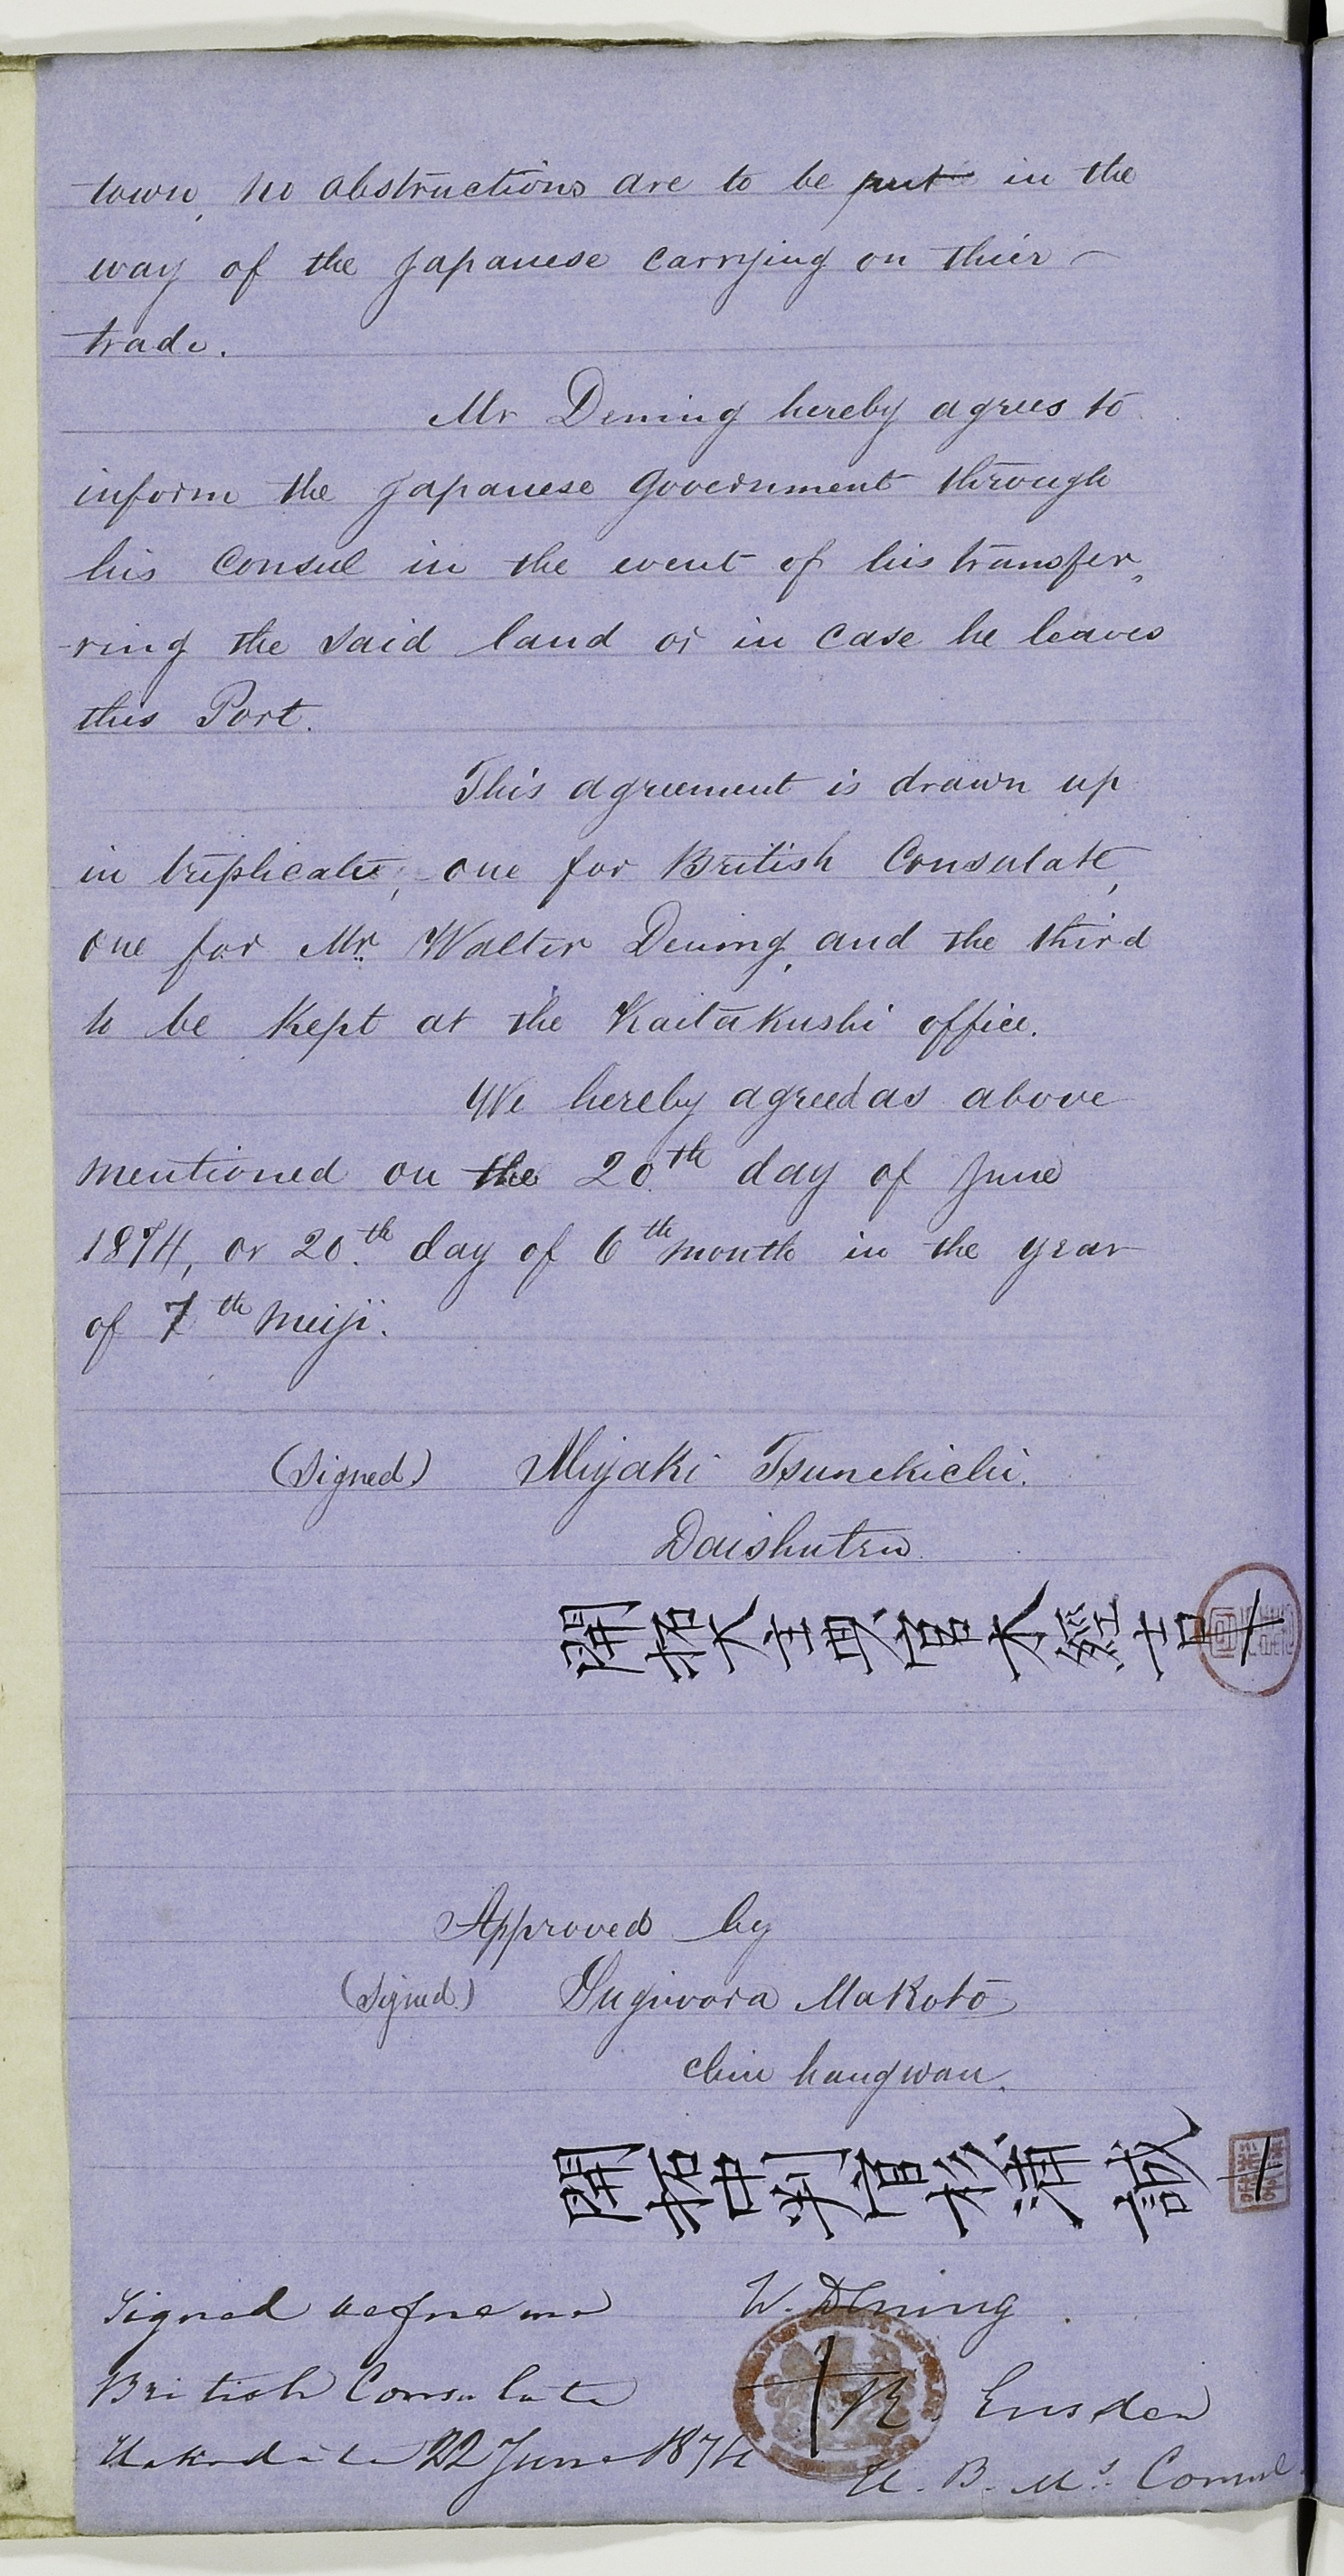 town, no obstructions are to be put in the
way of the Japanese carrying on thier
trade.
Mr Dening hereby agrees to
inform the Japanese Government through
his Consul in the event of his transfer,
-ring the said land or in case he leaves
this Port.
This agreement is drawn up
in triplicate, one for British Consulate,
one for Mr. Walter Dening, and the third
to be kept at the Kaitakushi office.
We hereby agreed as above
mentioned on the 20th day of June
1874, or 20th day of 6th month in the year
of 7th Meiji.
(Signed) Miyaki Tsunekichi.
Daishutsu
開拓大主典
(Signed)
Approved by
(Signed) Sugiwora Makoto
chiu hangwan.
開拓中判官杉浦誠
Signed before me W. Dening
British Consulate R. Eusden
Hakodate 22 June 1874
H. B. M's. Consul